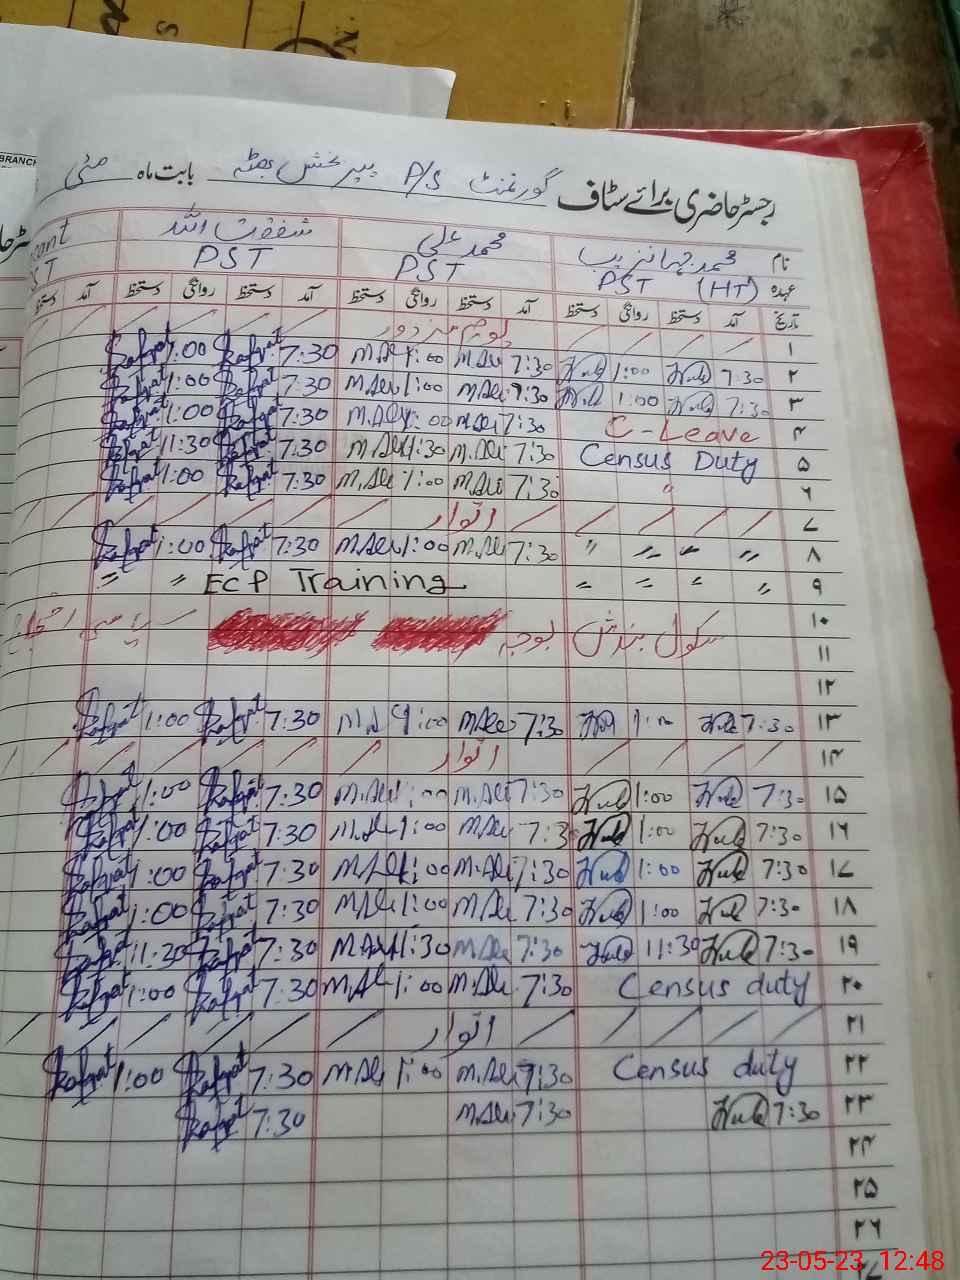 S
N
BRANCH
رجسٹر حاضری برائے سٹاف گورنمنٹ P/S پیر بخش بھٹہ بابت ماہ مئی
نام محمد جہانزیب محمد علی شفقت اللہ
عہدہ PST (HT) PST PST
تاریخ آمد دستخط روانگی دستخط آمد دستخط روانگی دستخط آمد دستخط روانگی دستخط آمد دستخط
۱ یوم مزدور
۲ 7:30 1:00 7:30 M.Ali 1:00 M.Ali 7:30 Shafqat 1:00 Shafqat
۳ 7:30 1:00 7:30 M.Ali 1:00 M.Ali 7:30 Shafqat 1:00 Shafqat
۴ C-Leave 7:30 M.Ali 1:00 M.Ali 7:30 Shafqat 1:00 Shafqat
۵ Census Duty 7:30 M.Ali 11:30 M.Ali 7:30 Shafqat 11:30 Shafqat
۶ " 7:30 M.Ali 1:00 M.Ali 7:30 Shafqat 1:00 Shafqat
۷ اتوار
۸ " " " " 7:30 M.Ali 1:00 M.Ali 7:30 Shafqat 1:00 Shafqat
۹ " " " " ECP Training " "
۱۰ سکول بندش بوجہ
۱۱
۱۲
۱۳ 7:30 1:00 7:30 M.Ali 1:00 M.Ali 7:30 Shafqat 1:00 Shafqat
۱۴ اتوار
۱۵ 7:30 1:00 7:30 M.Ali 1:00 M.Ali 7:30 Shafqat 1:00 Shafqat
۱۶ 7:30 1:00 7:30 M.Ali 1:00 M.Ali 7:30 Shafqat 1:00 Shafqat
۱۷ 7:30 1:00 7:30 M.Ali 1:00 M.Ali 7:30 Shafqat 1:00 Shafqat
۱۸ 7:30 1:00 7:30 M.Ali 1:00 M.Ali 7:30 Shafqat 1:00 Shafqat
۱۹ 7:30 11:30 7:30 M.Ali 11:30 M.Ali 7:30 Shafqat 11:30 Shafqat
۲۰ Census duty 7:30 M.Ali 1:00 M.Ali 7:30 Shafqat 1:00 Shafqat
۲۱ اتوار
۲۲ Census duty 7:30 M.Ali 1:00 M.Ali 7:30 Shafqat 1:00 Shafqat
۲۳ 7:30 7:30 M.Ali 7:30 Shafqat
۲۴
۲۵
۲۶
23-05-23, 12:48